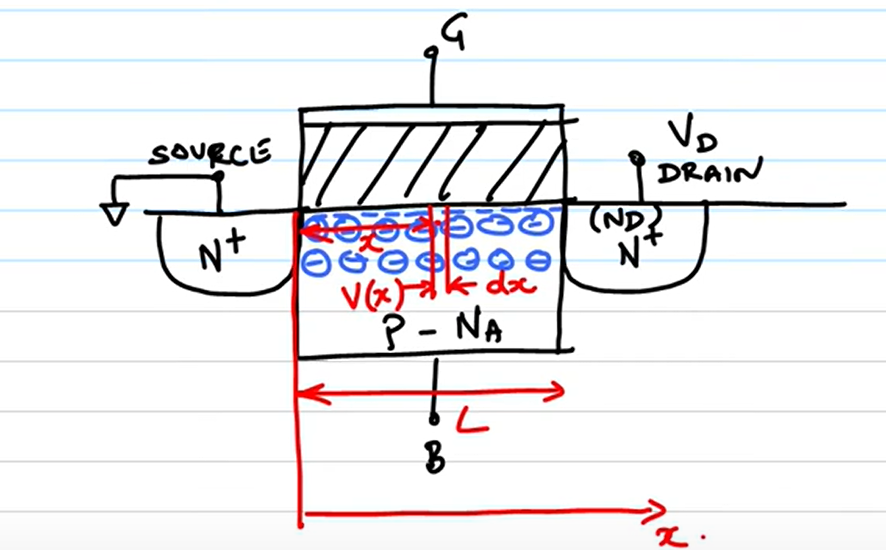 G
SOURCE
V_D
DRAIN
N+
(ND)
N+
x
V(x)
dx
P - N_A
L
B
x.